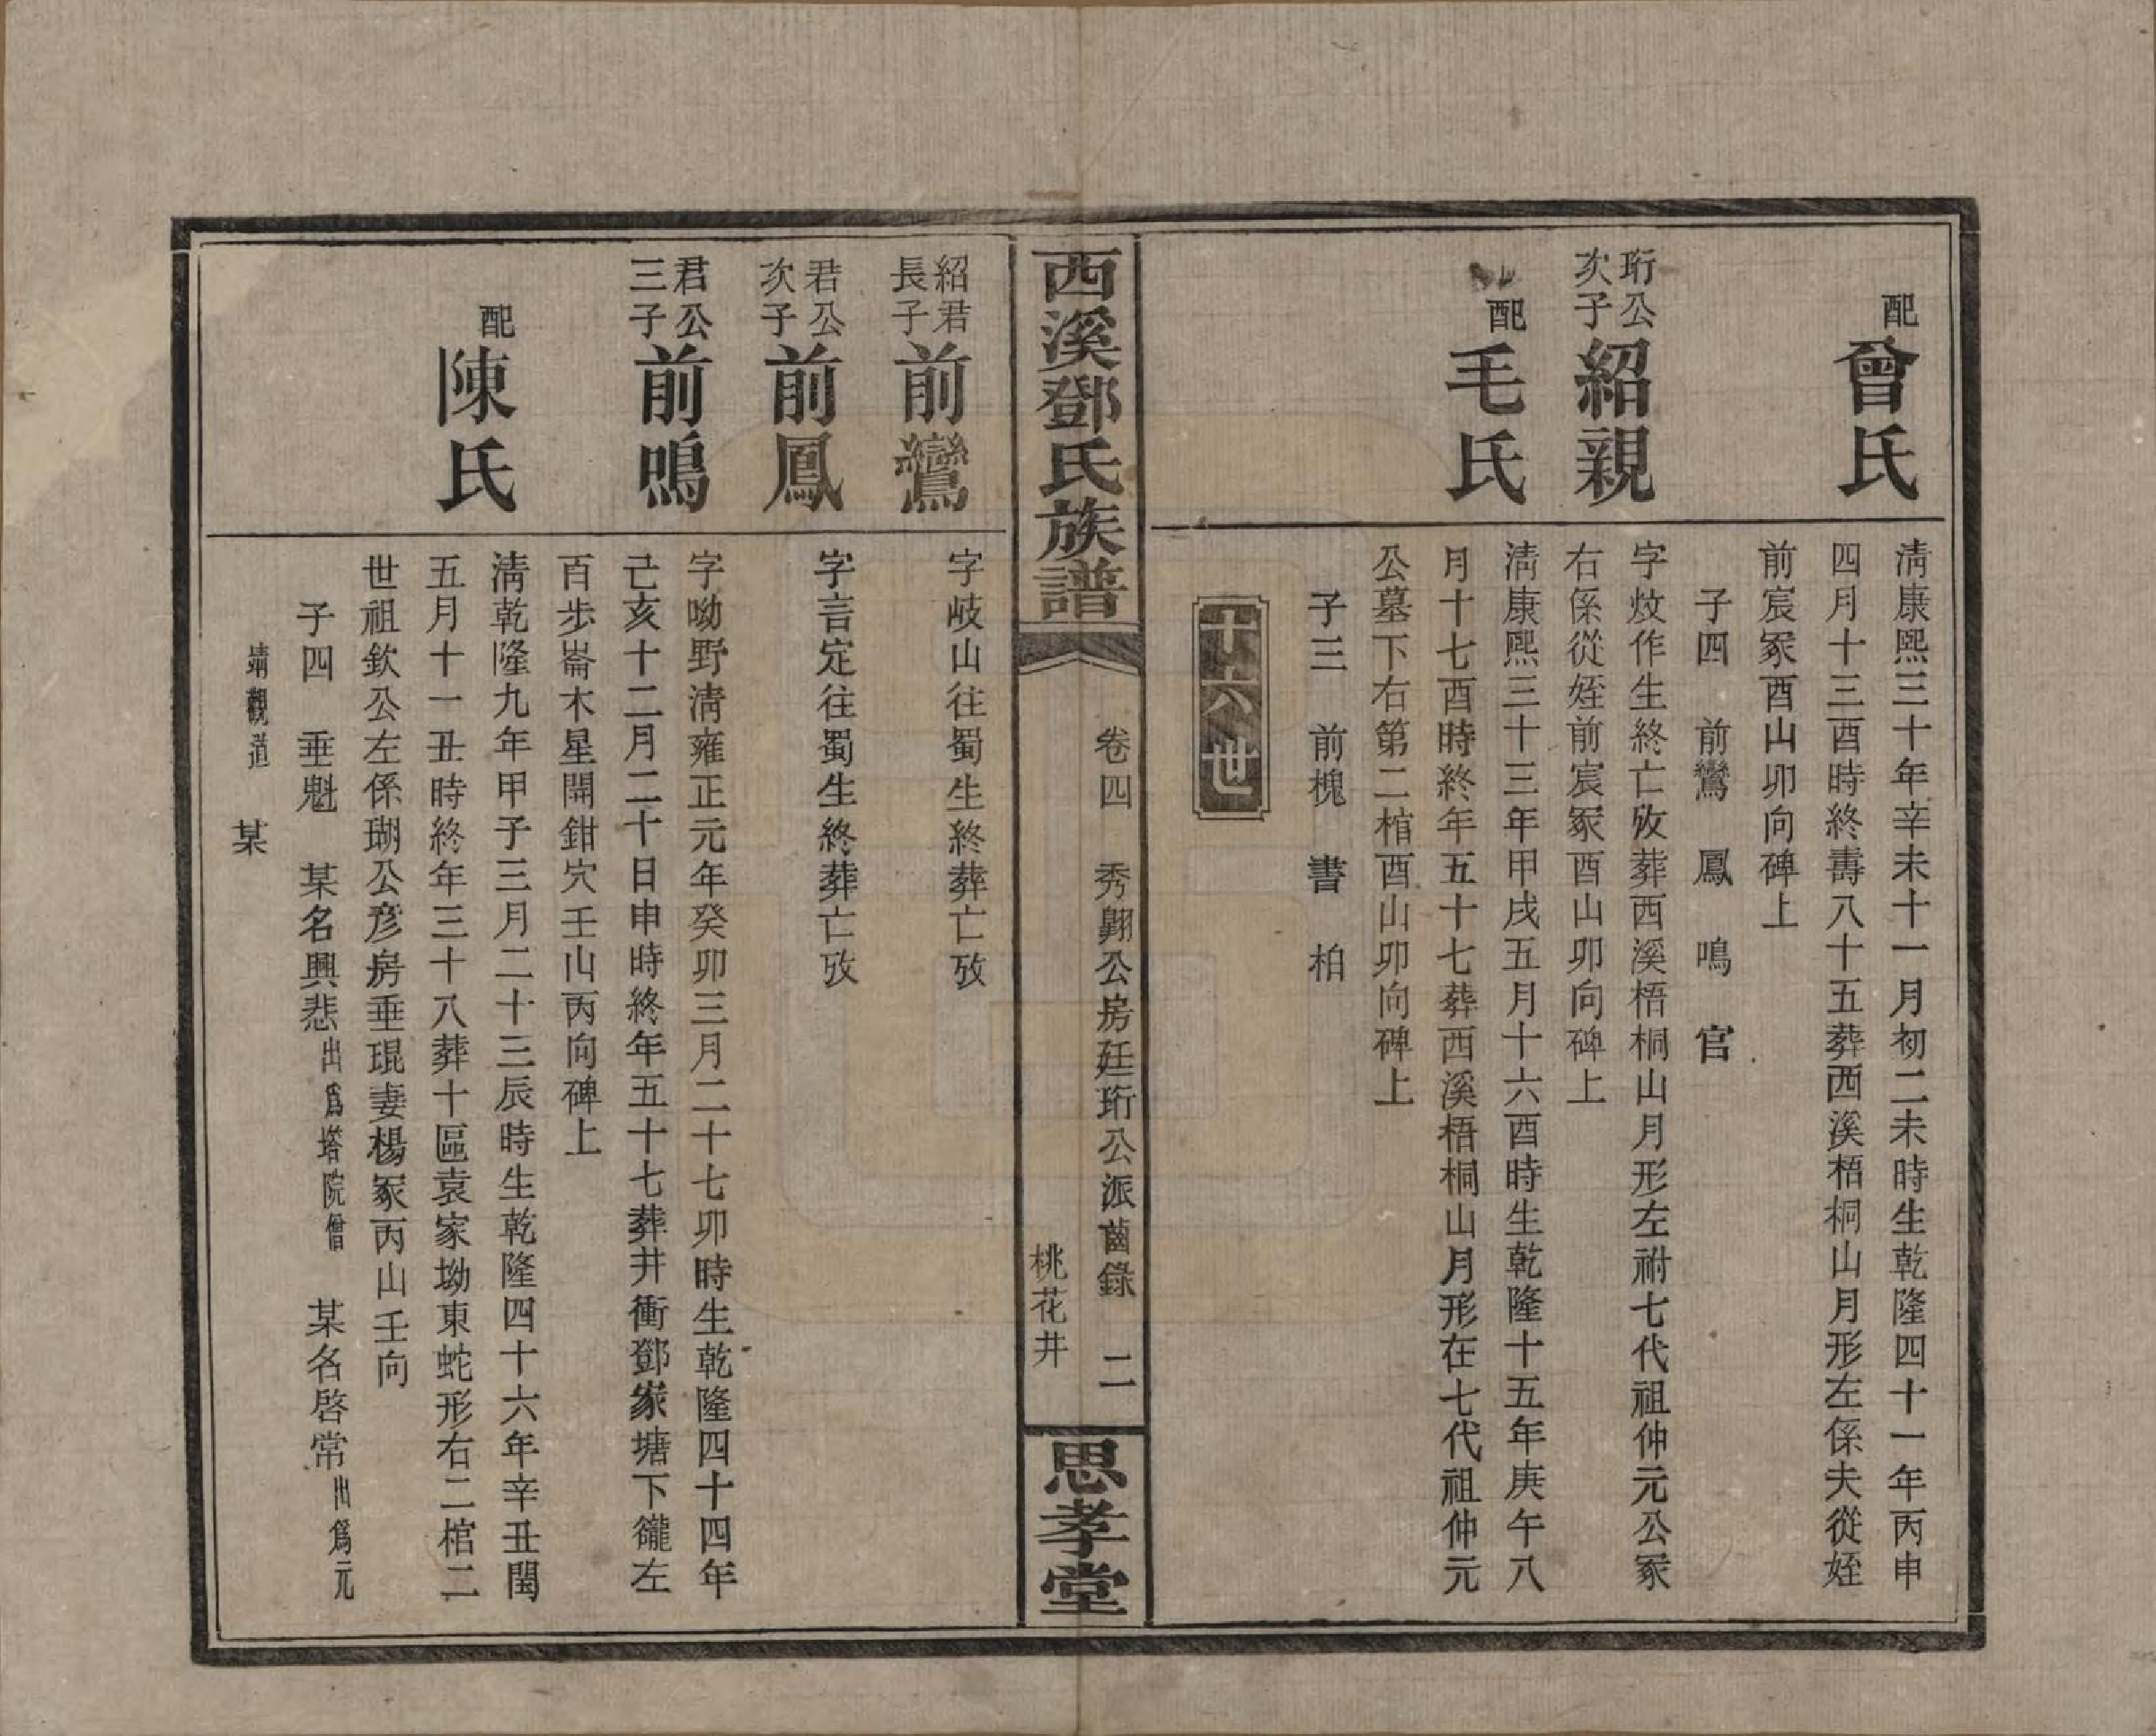 配曾氏
清康熙三十年辛未十一月初二未時生乾隆四十一年丙申
四月十三酉時終壽八十五葬西溪梧桐山月形左係夫從姪
前宸冢酉山卯向碑上
子四 前鸞 鳳 鳴 官
珩公次子紹親
字炆作生終亡攷葬西溪梧桐山月形左祔七代祖仲元公冢
右係從姪前宸冢酉山卯向碑上
配毛氏
清康熙三十三年甲戌五月十六酉時生乾隆十五年庚午八
月十七酉時終年五十七葬西溪梧桐山月形在七代祖仲元
公墓下右第二棺酉山卯向碑上
子三 前槐 書 柏
十六世
西溪鄧氏族譜
卷四 秀翺公房廷珩公派齒錄 二
桃花井
思孝堂
紹君長子前鸞
字岐山往蜀生終葬亡攷
君公次子前鳳
字言定往蜀生終葬亡攷
君公三子前鳴
字呦野清雍正元年癸卯三月二十七卯時生乾隆四十四年
己亥十二月二十日申時終年五十七葬井衝鄧家塘下龓左
百步崙木星開鉗穴壬山丙向碑上
配陳氏
清乾隆九年甲子三月二十三辰時生乾隆四十六年辛丑閏
五月十一丑時終年三十八葬十區袁家坳東蛇形右二棺二
世祖欽公左係瑚公彦房垂琨妻楊冢丙山壬向
子四 垂魁 某名興悲出爲塔院僧 某名啓常出爲元
靖觀道 某